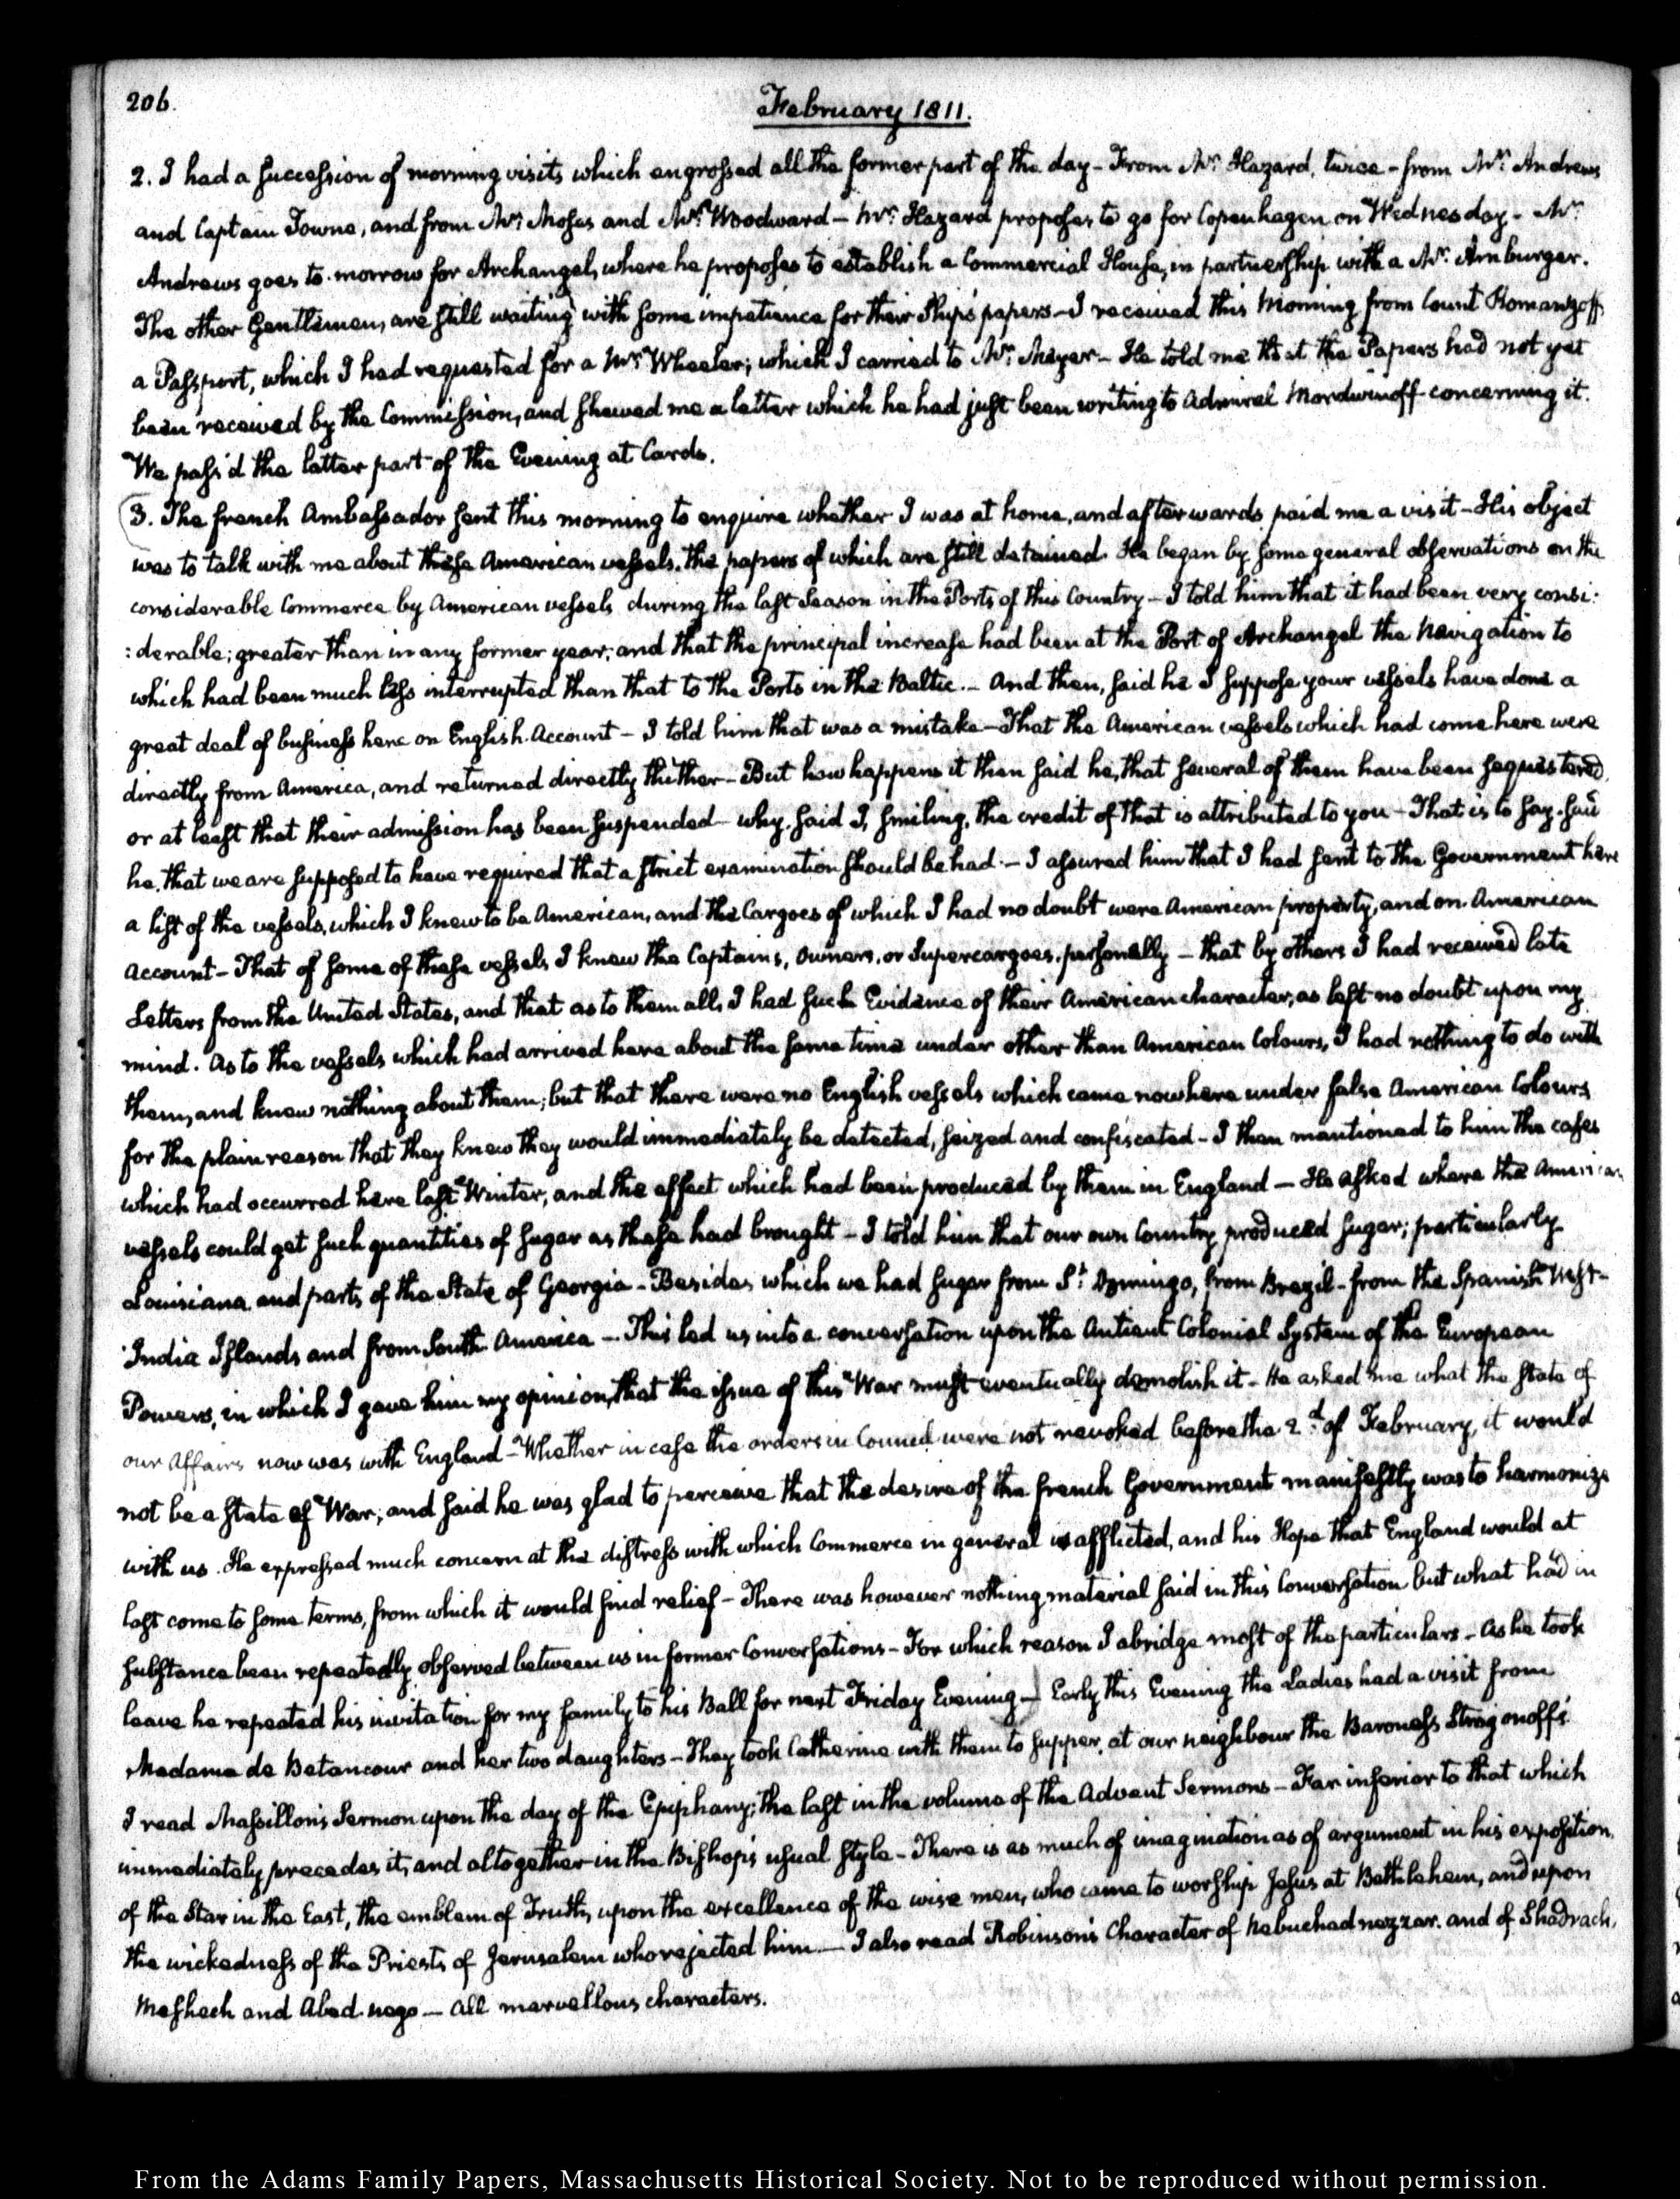 206.
February 1811.
2. I had a succession of morning visits which engrossed all the former part of the day – From Mr. Hazard, twice – from Mr. Andrews
and Captain Towne, and from Mr. Moses and Mr. Woodward – Mr. Hazard proposes to go for Copenhagen on Wednesday – Mr.
Andrews goes to-morrow for Archangel, where he proposes to establish a Commercial House, in partnership with a Mr. Amburger.
The other Gentlemen, are still waiting with some impatience for their Ships' papers – I received this Morning from Count Romanzoff,
a Passport, which I had requested for a Mr. Wheeler; which I carried to Mr. Meyer – He told me that the Papers had not yet
been received by the Commission, and shewed me a letter which he had just been writing to Admiral Mordwinoff concerning it.
We pass'd the latter part of the Evening at Cards.
3. The french Ambassador sent this morning to enquire whether I was at home, and afterwards paid me a visit – His object
was to talk with me about these American vessels, the papers of which are still detained. He began by some general observations on the
considerable Commerce by American vessels during the last Season in the Ports of this Country – I told him that it had been very consi:
:derable; greater than in any former year; and that the principal increase had been at the Port of Archangel the Navigation to
which had been much less interrupted than that to the Ports in the Baltic. – And then, said he I suppose your vessels have done a
great deal of business here on English Account – I told him that was a mistake – That the American vessels which had come here were
directly from America, and returned directly thither – But how happens it then said he, that several of them have been sequestered,
or at least that their admission has been suspended – why, said I, smiling, the credit of that is attributed to you – That is to say, said
he, that we are supposed to have required that a strict examination should be had. – I assured him that I had sent to the Government here
a list of the vessels, which I knew to be American, and the Cargoes of which I had no doubt were American property, and on American
account – That of some of these vessels I knew the Captains, Owners, or Supercargoes, personally – that by others I had received late
Letters from the United States, and that as to them all, I had such Evidence of their American character, as left no doubt upon my
mind. As to the vessels which had arrived here about the same time under other than American Colours, I had nothing to do with
them, and knew nothing about them; but that there were no English vessels which came now here under false American Colours
for the plain reason that they knew they would immediately be detected, seized and confiscated – I then mentioned to him the cases
which had occurred here last Winter, and the effect which had been produced by them in England – He asked where the American
vessels could get such quantities of sugar as these had brought – I told him that our own Country produced sugar; particularly
Louisiana and parts of the State of Georgia – Besides which we had sugar from St. Domingo, from Brazil – from the Spanish West-
India Islands and from South America – This led us into a conversation upon the Antient Colonial System of the European
Powers, in which I gave him my opinion, that the issue of this War must eventually demolish it – He asked me what the state of
our Affairs now was with England – Whether in case the orders in Council were not revoked before the 2.d of February, it would
not be a state of War; and said he was glad to perceive that the desire of the french Government manifestly was to harmonize
with us. He expressed much concern at the distress with which Commerce in general is afflicted, and his Hope that England would at
last come to some terms, from which it would find relief – There was however nothing material said in this Conversation but what had in
substance been repeatedly observed between us in former Conversations – For which reason I abridge most of the particulars – As he took
leave he repeated his invitation for my family to his Ball for next Friday Evening – Early this Evening the Ladies had a visit from
Madame de Betancour and her two daughters – They took Catherine with them to supper, at our neighbour the Baroness Strogonoff's.
I read Massillon's Sermon upon the day of the Epiphany; the last in the volume of the Advent Sermons – Far inferior to that which
immediately precedes it, and altogether in the Bishop's usual style – There is as much of imagination as of argument in his exposition,
of the Star in the East, the emblem of Truth, upon the excellence of the wise men, who came to worship Jesus at Bethlehem, and upon
the wickedness of the Priests of Jerusalem who rejected him. – I also read Robinson's Character of Nebuchadnezzar, and of Shadrach,
Meshech and Abed-nego – all marvellous characters.
From the Adams Family Papers, Massachusetts Historical Society. Not to be reproduced without permission.